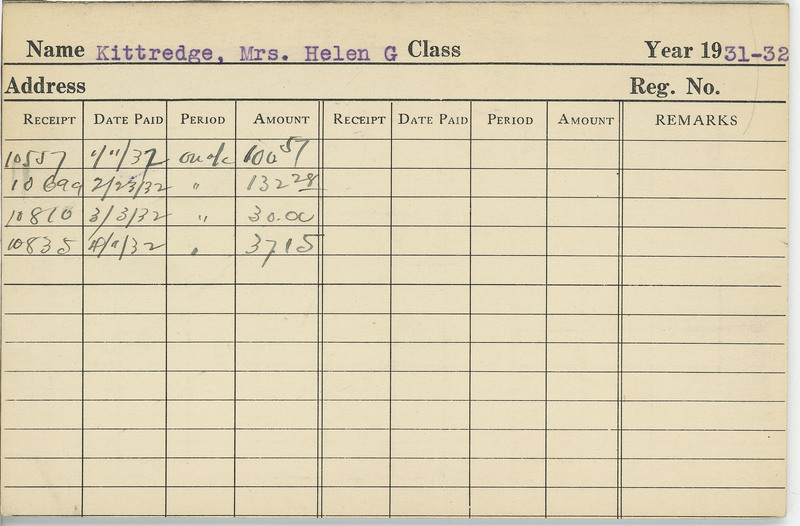 Name Kittredge, Mrs. Helen G Class Year 1931-32
Address Reg. No.
RECEIPT DATE PAID PERIOD AMOUNT RECEIPT DATE PAID PERIOD AMOUNT REMARKS
10557 1/11/32 on a/c 100 57
10699 2/23/32 " 132 28
10810 3/3/32 " 30.00
10835 4/11/32 " 37 15